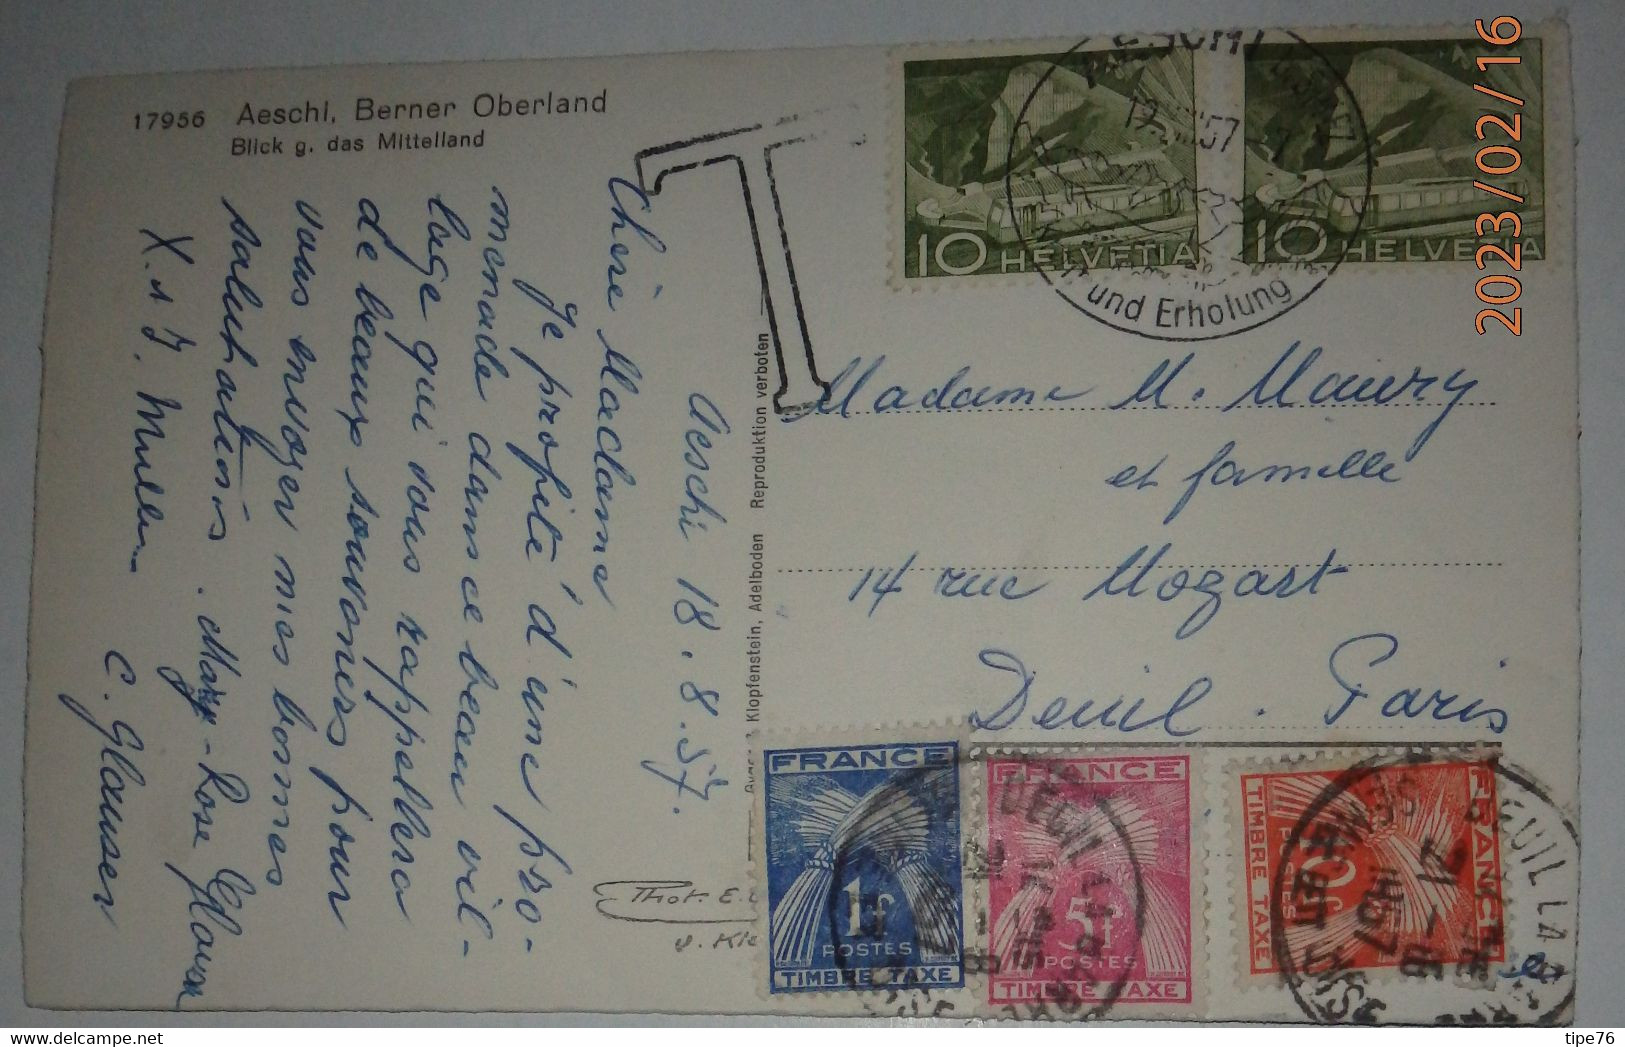 17956 Aeschi, Berner Oberland
Blick g. das Mittelland
Aeschi 18.8.57.
Chère Madame
Je profite d'une pro-
menade dans ce beau vil-
lage qui vous rappellera
de beaux souvenirs pour
vous envoyer mes bonnes
salutations. Mary-Rose
C. Glauser
Klopfenstein, Adelboden Reproduktion verboten
Phot. E.
T
10 HELVETIA
10 HELVETIA
57
und Erholung
Madame M. Maury
et famille
14 rue Mozart
Deuil. Paris
FRANCE
1F
POSTES
TIMBRE TAXE
FRANCE
5F
POSTES
TIMBRE TAXE
FRANCE
POSTES
TIMBRE TAXE
DEUIL LA
2023/02/16
delcampe.net
tipe76